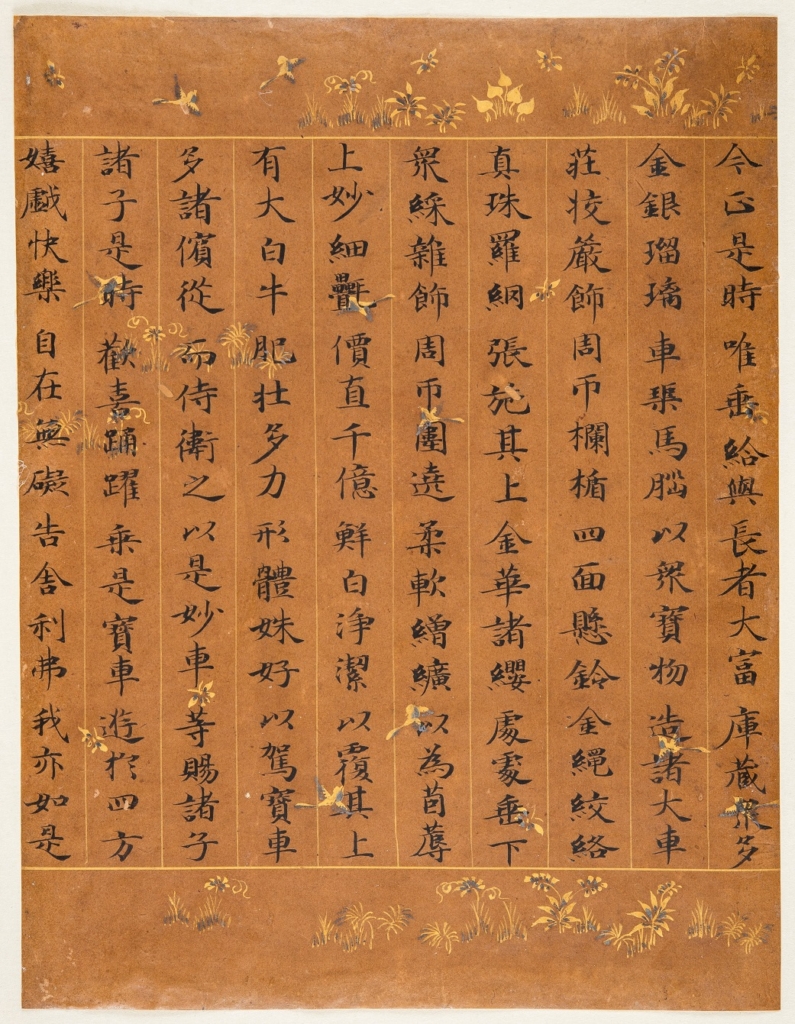 今正是時唯垂給與長者大富庫藏衆多
金銀瑠璃車𤦲馬腦以衆寶物造諸大車
莊挍嚴飾周帀欄楯四面懸鈴金繩絞絡
真珠羅網張施其上金華諸纓處處垂下
衆綵雜飾周帀圍遶柔軟繒纊以為茵蓐
上妙細㲲價直千億鮮白淨潔以覆其上
有大白牛肥壯多力形體姝好以駕寶車
多諸儐從而侍衛之以是妙車等賜諸子
諸子是時歡喜踊躍乘是寶車遊於四方
嬉戲快樂自在無礙告舍利弗我亦如是